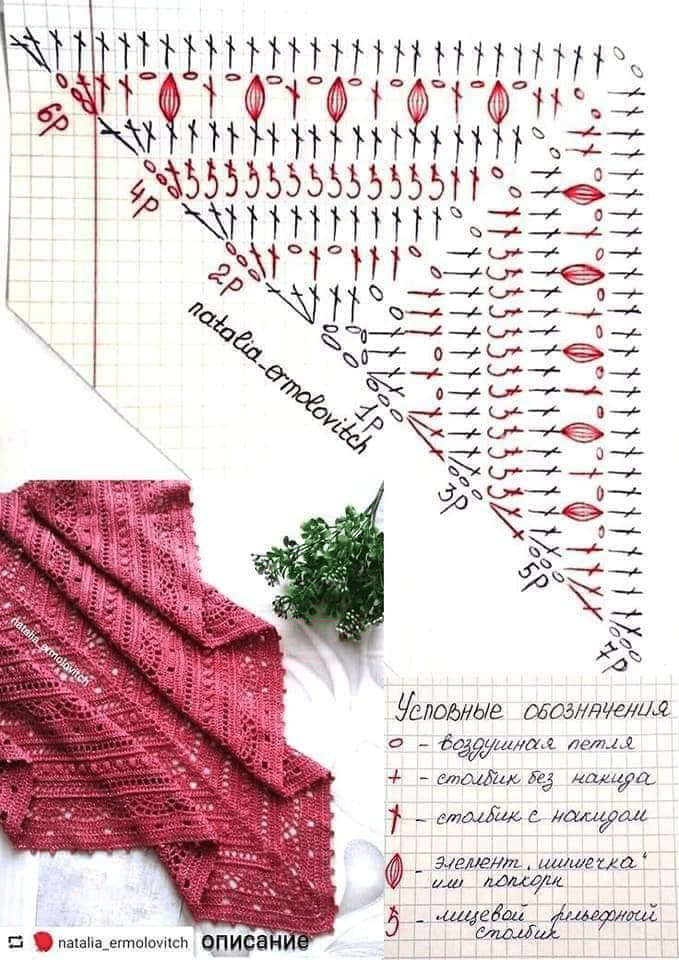 6р
4р
2р
natalia_ermolovitch
1р
3р
5р
7р
natalia_ermolovitch
Условные обозначения
о - воздушная петля
+ - столбик без накида
- столбик с накидом
- элемент "шишечка"
или попкорн
- лицевой рельефный
столбик
natalia_ermolovitch описание